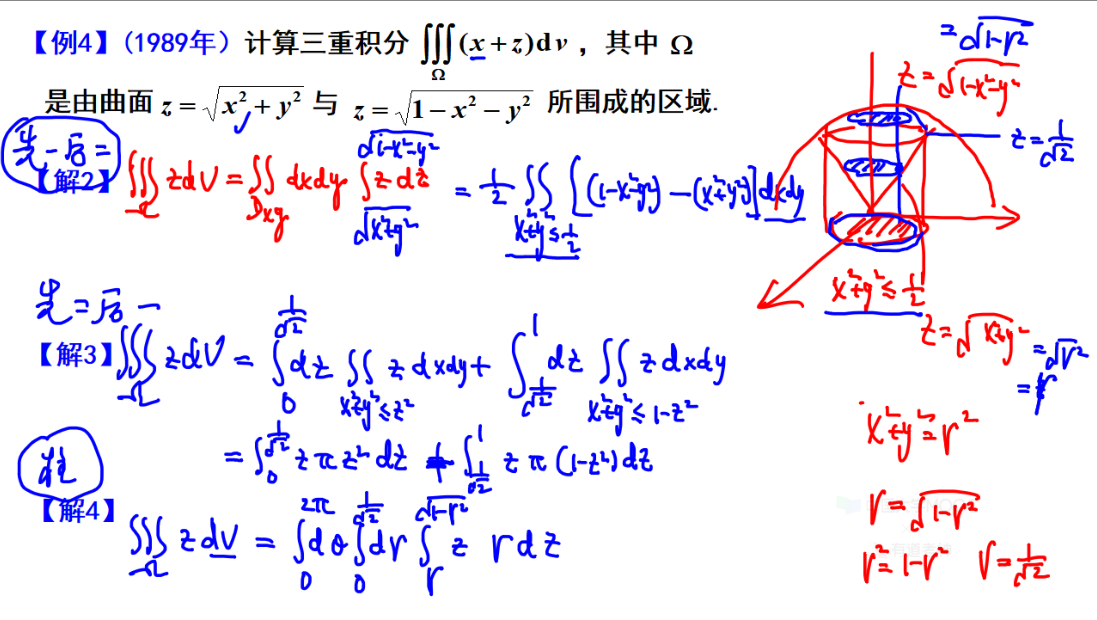 【例4】(1989年) 计算三重积分 ∭_Ω (x+z)dv ，其中 Ω
是由曲面 z = √(x²+y²) 与 z = √(1-x²-y²) 所围成的区域.
先一后二
【解2】 ∭_Ω zdV = ∬_Dxy dxdy ∫_{√(x²+y²)}^{√(1-x²-y²)} z dz = 1/2 ∬_{x²+y²≤1/2} [(1-x²-y²)-(x²+y²)]dxdy
先二后一
【解3】 ∭_Ω zdV = ∫_0^{1/√2} dz ∬_{x²+y²≤z²} z dxdy + ∫_{1/√2}^1 dz ∬_{x²+y²≤1-z²} z dxdy
= ∫_0^{1/√2} z π z² dz + ∫_{1/√2}^1 z π (1-z²) dz
柱
【解4】 ∭_Ω z dV = ∫_0^{2π} dθ ∫_0^{1/√2} dr ∫_r^{√(1-r²)} z r dz
= √(1-r²)
z = √(1-x²-y²)
z = 1/√2
x²+y² ≤ 1/2
z = √(x²+y²) = √r²
= r
x²+y² = r²
r = √(1-r²)
r² = 1-r² r = 1/√2